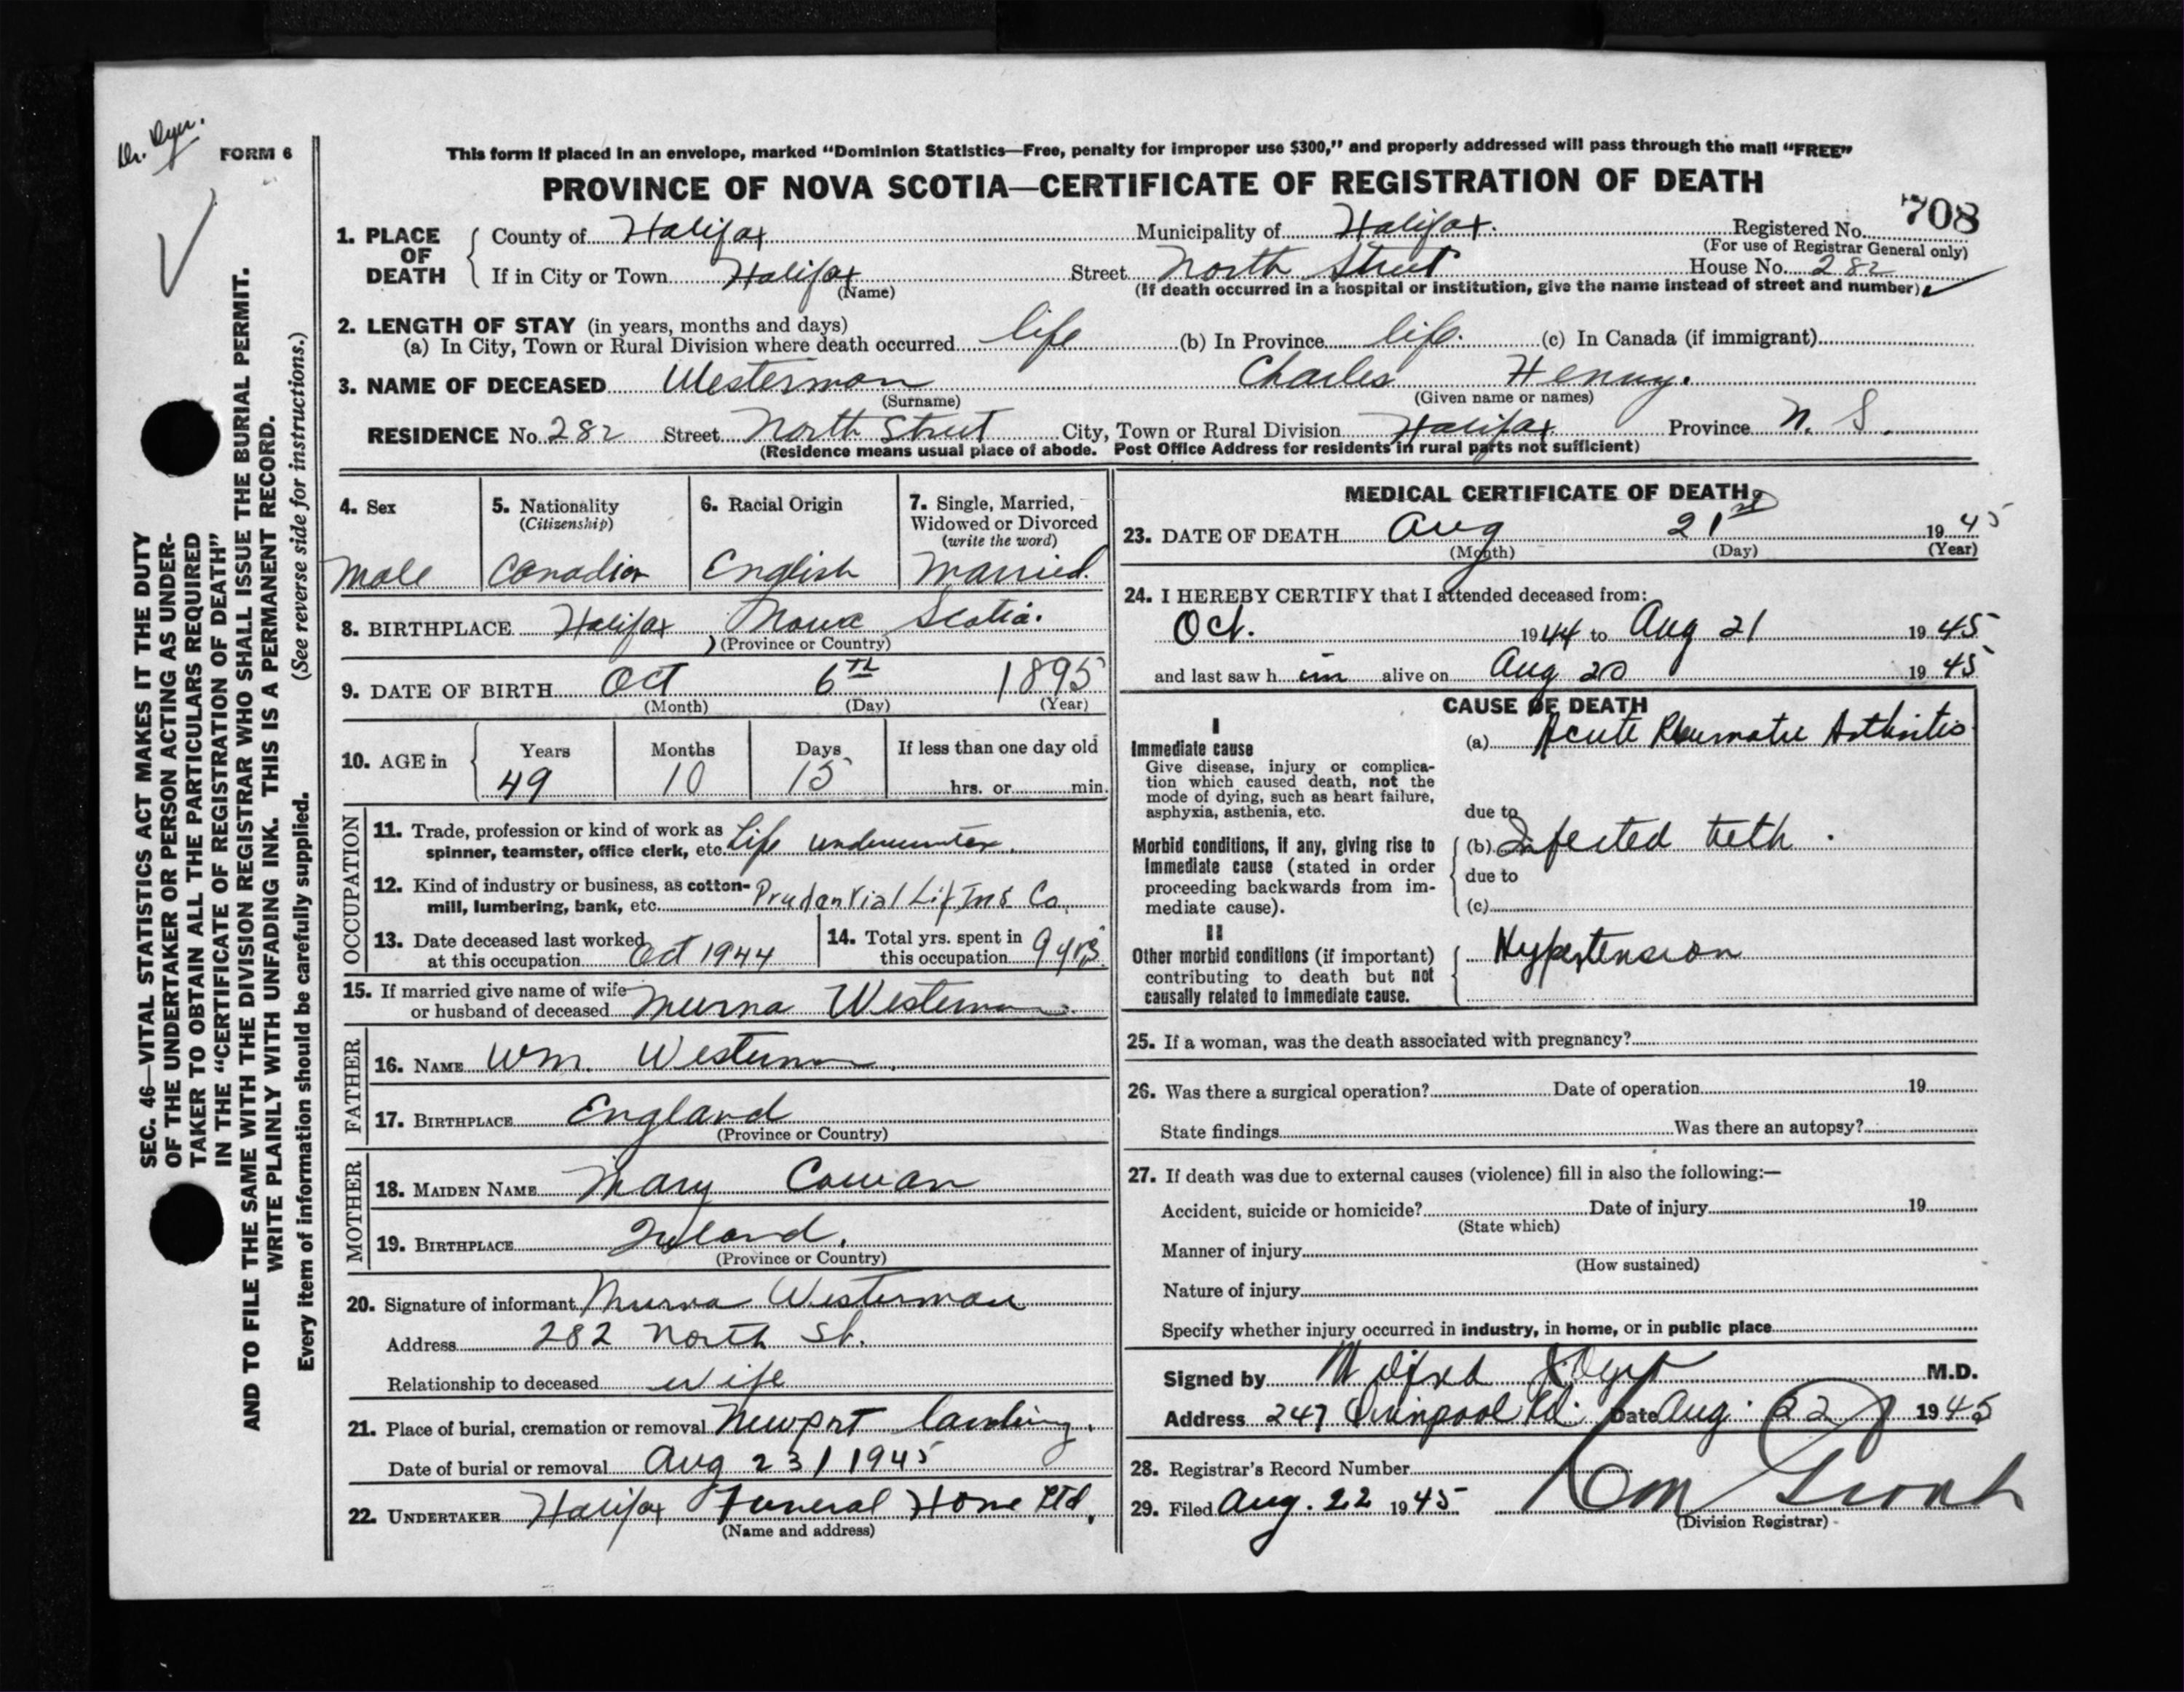 Dr. Dyer.
FORM 6
This form if placed in an envelope, marked “Dominion Statistics—Free, penalty for improper use $300,” and properly addressed will pass through the mail “FREE”
PROVINCE OF NOVA SCOTIA—CERTIFICATE OF REGISTRATION OF DEATH
708
1. PLACE OF DEATH
County of Halifax Municipality of Halifax. Registered No.
(For use of Registrar General only)
If in City or Town Halifax Street North Street House No. 282
(Name) (If death occurred in a hospital or institution, give the name instead of street and number)
2. LENGTH OF STAY (in years, months and days)
(a) In City, Town or Rural Division where death occurred life (b) In Province life. (c) In Canada (if immigrant)
3. NAME OF DECEASED Westerman Charles Henry.
(Surname) (Given name or names)
RESIDENCE No. 282 Street North Street City, Town or Rural Division Halifax Province N. S.
(Residence means usual place of abode. Post Office Address for residents in rural parts not sufficient)
4. Sex
Male
5. Nationality
(Citizenship)
Canadian
6. Racial Origin
English
7. Single, Married,
Widowed or Divorced
(write the word)
Married.
8. BIRTHPLACE Halifax Nova Scotia.
(Province or Country)
9. DATE OF BIRTH Oct 6th 1895
(Month) (Day) (Year)
10. AGE in
Years Months Days If less than one day old
49 10 15 hrs. or min.
OCCUPATION
11. Trade, profession or kind of work as
spinner, teamster, office clerk, etc. Life underwriter.
12. Kind of industry or business, as cotton-
mill, lumbering, bank, etc. Prudential Life Ins Co.
13. Date deceased last worked
at this occupation Oct 1944
14. Total yrs. spent in
this occupation 9 yrs.
15. If married give name of wife
or husband of deceased Murna Westerman.
FATHER
16. NAME Wm. Westerman.
17. BIRTHPLACE England
(Province or Country)
MOTHER
18. MAIDEN NAME Mary Cowan
19. BIRTHPLACE Ireland.
(Province or Country)
20. Signature of informant Murna Westerman
Address 282 North St.
Relationship to deceased wife
21. Place of burial, cremation or removal Newport Landing.
Date of burial or removal Aug 23/1945
22. UNDERTAKER Halifax Funeral Home Ltd.
(Name and address)
MEDICAL CERTIFICATE OF DEATH
23. DATE OF DEATH Aug 21st 1945
(Month) (Day) (Year)
24. I HEREBY CERTIFY that I attended deceased from:
Oct. 1944 to Aug 21 1945
and last saw h im alive on Aug 20 1945
CAUSE OF DEATH
I
Immediate cause
Give disease, injury or complica-
tion which caused death, not the
mode of dying, such as heart failure,
asphyxia, asthenia, etc.
(a) Acute Rheumatic Arthritis
due to
Morbid conditions, if any, giving rise to
immediate cause (stated in order
proceeding backwards from im-
mediate cause).
(b) Infected teeth.
due to
(c)
II
Other morbid conditions (if important)
contributing to death but not
causally related to immediate cause.
Hypertension
25. If a woman, was the death associated with pregnancy?
26. Was there a surgical operation? Date of operation 19
State findings Was there an autopsy?
27. If death was due to external causes (violence) fill in also the following:—
Accident, suicide or homicide? Date of injury 19
(State which)
Manner of injury
(How sustained)
Nature of injury
Specify whether injury occurred in industry, in home, or in public place
Signed by Dyer M.D.
Address 247 Quinpool Rd. Date Aug. 22 1945
28. Registrar's Record Number
29. Filed Aug. 22 1945
(Division Registrar)
SEC. 46—VITAL STATISTICS ACT MAKES IT THE DUTY
OF THE UNDERTAKER OR PERSON ACTING AS UNDER-
TAKER TO OBTAIN ALL THE PARTICULARS REQUIRED
IN THE “CERTIFICATE OF REGISTRATION OF DEATH”
AND TO FILE THE SAME WITH THE DIVISION REGISTRAR WHO SHALL ISSUE THE BURIAL PERMIT.
WRITE PLAINLY WITH UNFADING INK. THIS IS A PERMANENT RECORD.
Every item of information should be carefully supplied. (See reverse side for instructions.)